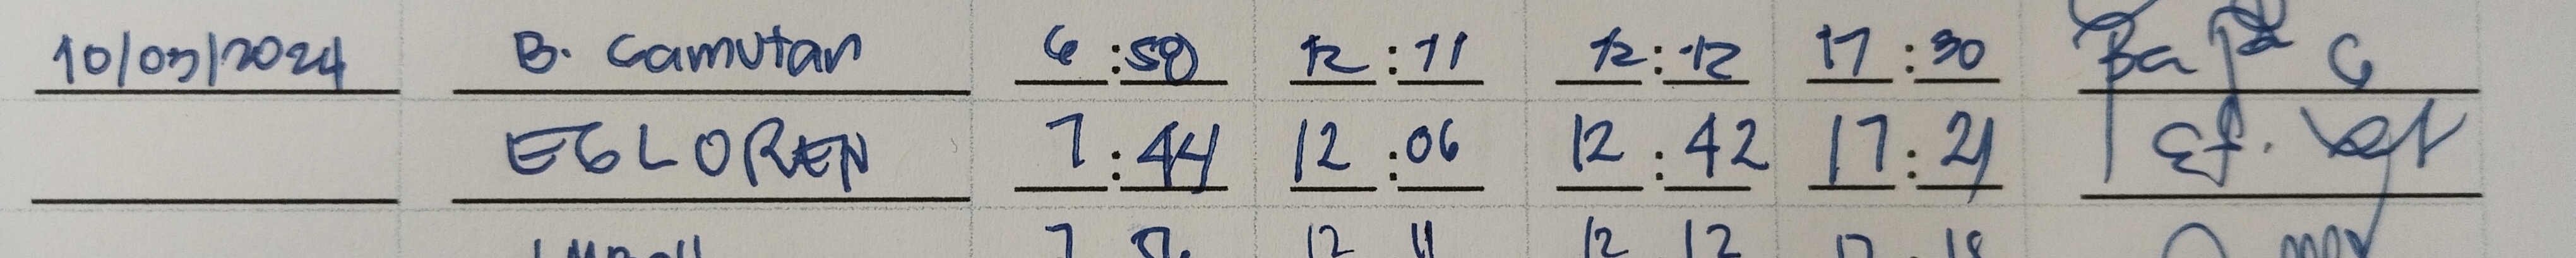 10/03/2024 B. Camutan 6:58 12:11 12:12 17:30
EGLOREN 7:44 12:06 12:42 17:21
7 12 11 12 12 17 18